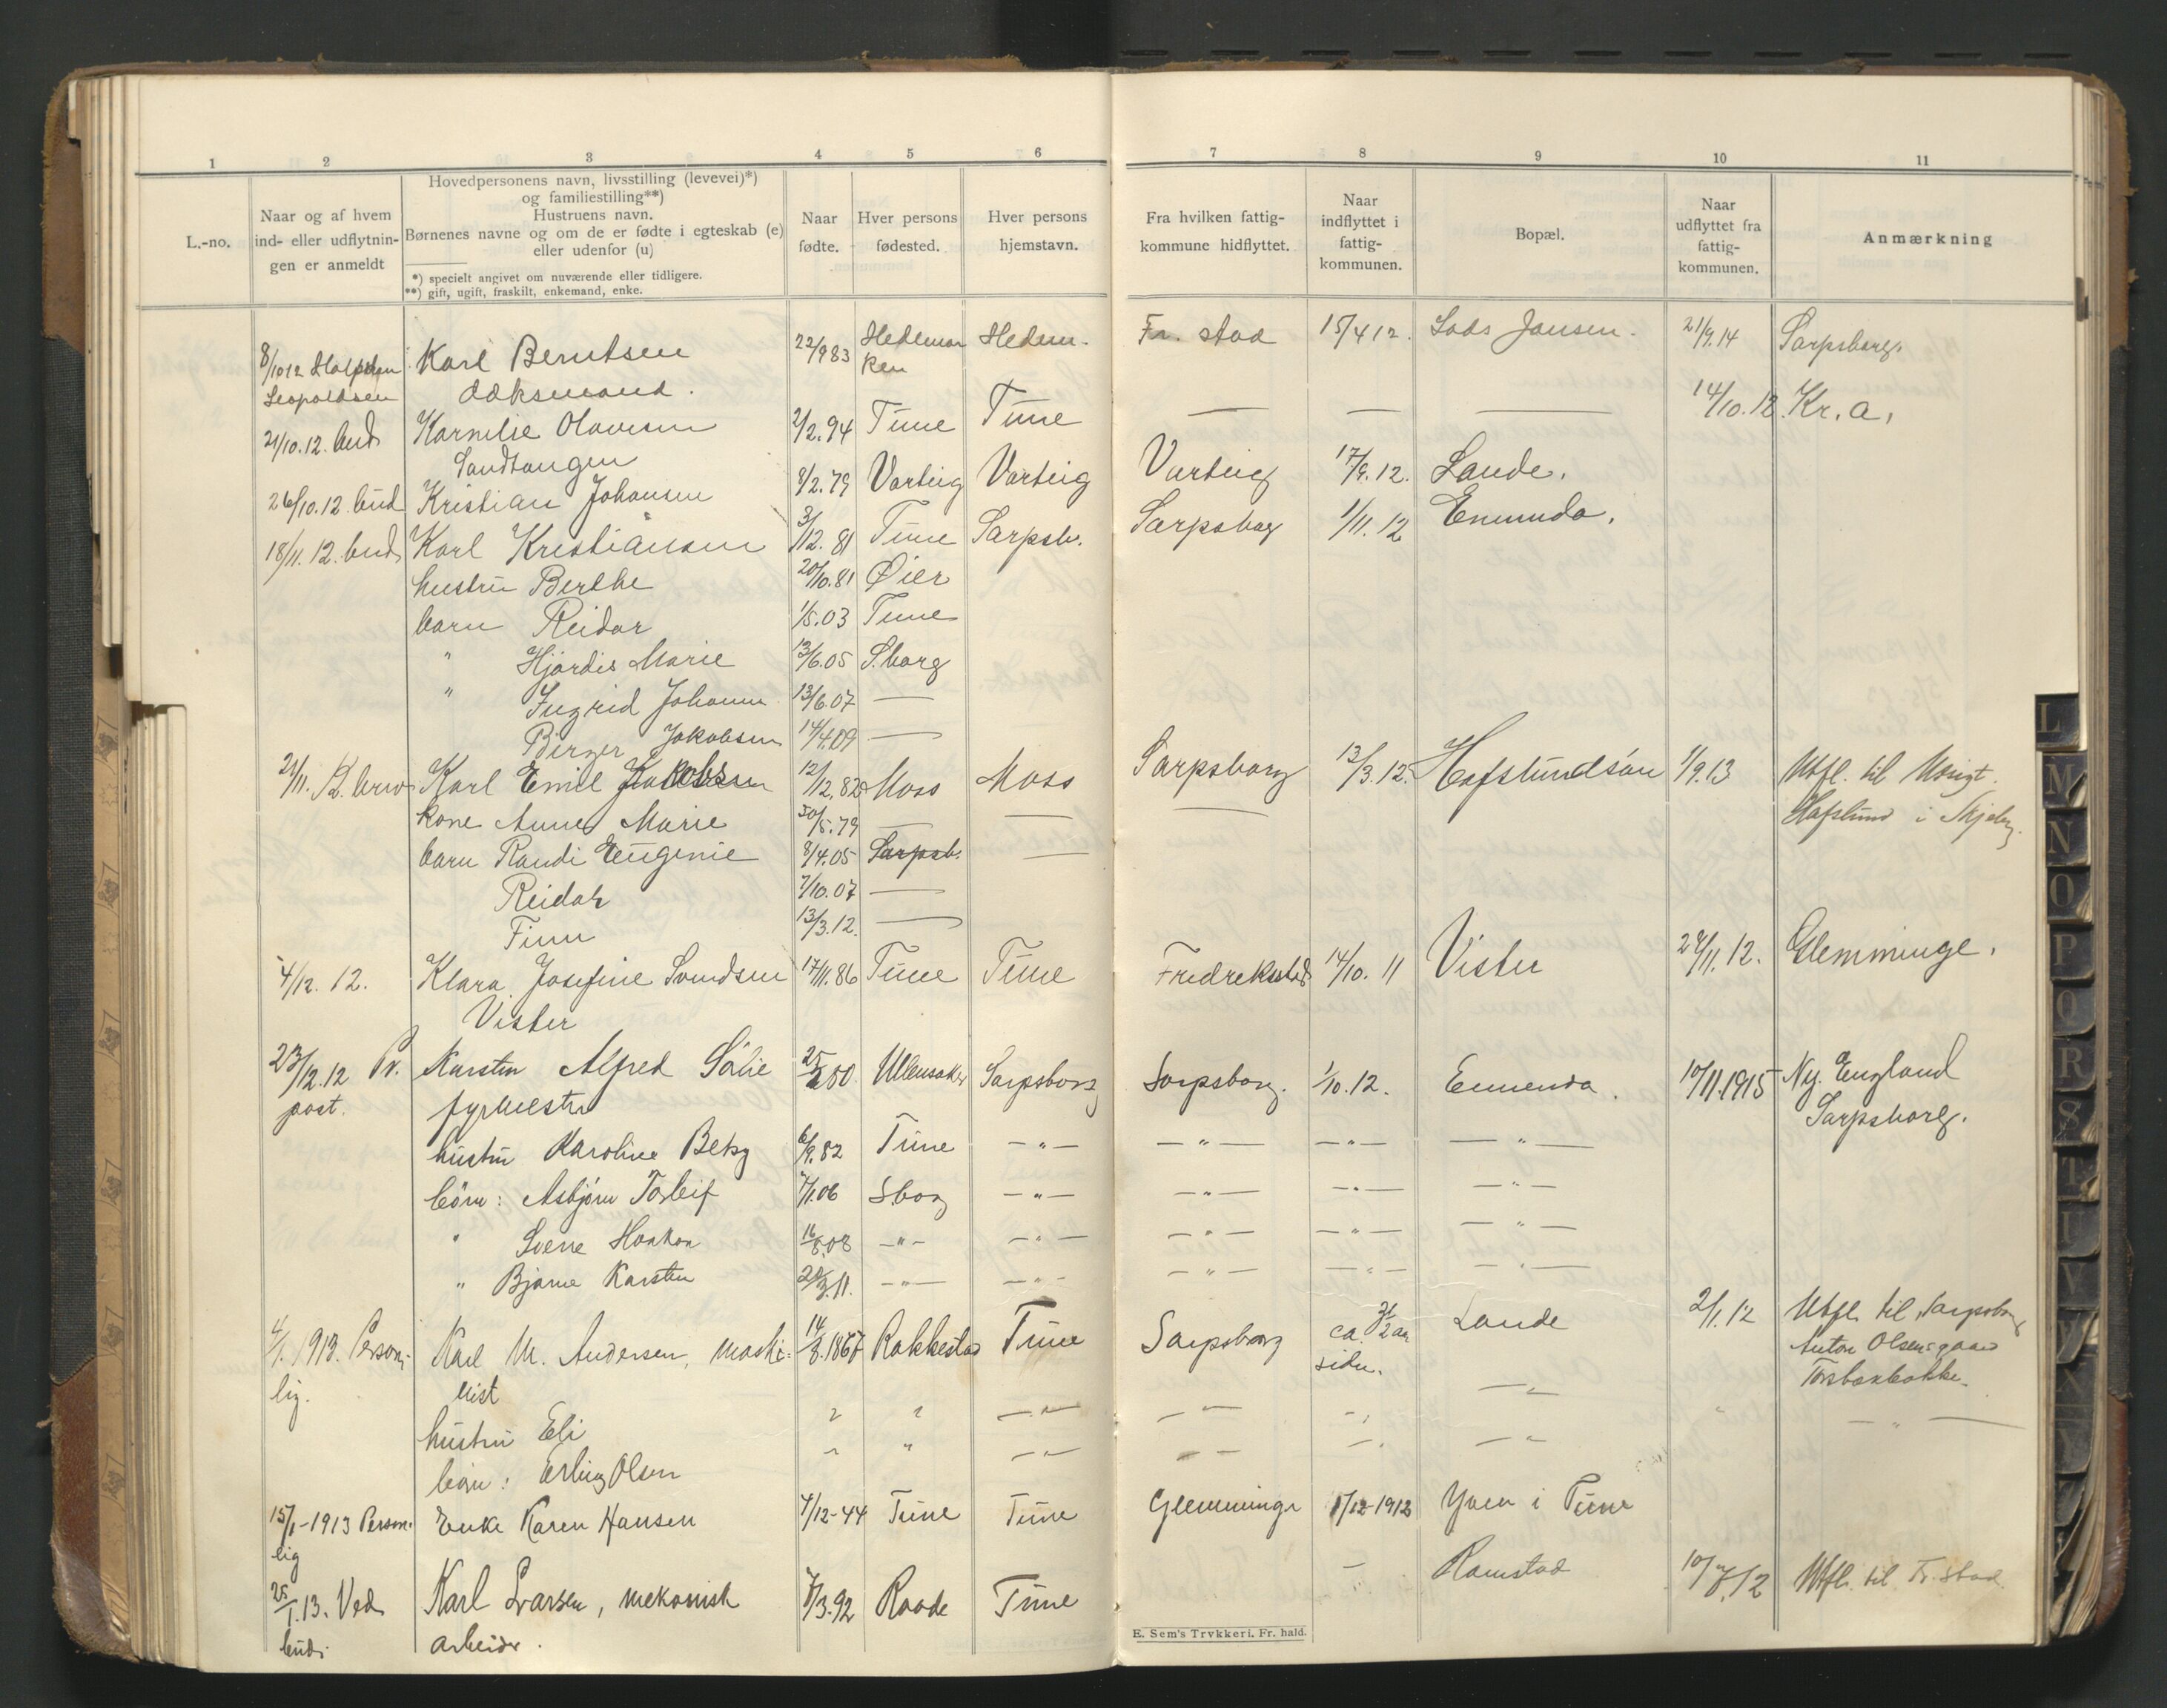 1 2 3 4 5 6 7 8 9 10 11
L.-no.
Naar og af hvem
ind- eller udflytnin-
gen er anmeldt
Hovedpersonens navn, livsstilling (levevei)*)
og familiestilling**)
Hustruens navn.
Børnenes navne og om de er fødte i egteskab (e)
eller udenfor (u)
*) specielt angivet om nuværende eller tidligere.
**) gift, ugift, fraskilt, enkemand, enke.
Naar
fødte.
Hver persons
fødested.
Hver persons
hjemstavn.
Fra hvilken fattig-
kommune hidflyttet.
Naar
indflyttet i
fattig-
kommunen.
Bopæl.
Naar
udflyttet fra
fattig-
kommunen.
Anmærkning
8/10 12 Karl Berntsen 22/9 83 Hedemar Hedem. Fr. stad 15/4 12. Lods Jansen. 21/9.14 Sarpsborg.
Leopoldsen dæksmand. ken
21/10.12. bud Kornelie Olavesen 2/2.94 Tune Tune — — — 14/10.12. Kr.a.
Sandtangen
26/10.12. bud Kristian Johansen 8/2.79 Varteig Varteig Varteig 17/9.12. Lande.
18/11.12. bud Karl Kristiansen 3/12.81 Tune Sarpsb. Sarpsborg 1/11.12 Enenda.
hustru Berthe 20/10.81 Øier
barn Reidar 1/5.03 Tune
" Hjørdis Marie 13/6.05 S.borg
" Ingrid Johanne 13/6.07 —
Birger Jakobsen 14/4.09 —
21/11.12. brev Karl Emil Jakobsen 12/12.82 Moss Moss Sarpsborg 13/3.12. Hafslundsøen 1/9.13 Utfl. til
kone Anne Marie 30/5.79 — — — Hafslund i Skjeberg.
barn Randi Eugenie 8/4.05 Sarpsb. —
Reidar 7/10.07 —
Finn 13/3.12. —
4/12.12. Klara Josefine Svendsen 17/11.86 Tune Tune Fredrekstad 14/10.11 Vister 29/11.12. Glemminge.
Vister
23/12.12 Pr. Karsten Alfred Sølie 80. Ullensaker Sarpsborg Sarpsborg. 1/10.12. Enenda. 10/11.1915 Ny. England
post. fyrbøster Sarpsborg.
hustru Karoline Betzy 6/9.82 Tune —"— —"— —"— —"—
børn: Asbjørn Torleif 7/1.06 Sborg —"— —"— —"— —"—
" Sverre Haakon 16/8.08 —"— —"— —"— —"— —"—
" Bjarne Karsten 28/3.11. —"— —"— —"— —"— —"—
4/1.1913. Person- Karl M. Andersen, maski- 14/8.1867 Rakkestad Tune Sarpsborg ca. 3 1/2 aar Lande 2/1.12 Utfl. til Sarpsborg
lig. nist siden. Anton Olsensgaard
hustru Eli " " —"— —"— —"— —"— " —"—
barn: Erling Olsen " " —"— —"— —"— —"—
15/1-1913 Person- Enke Karen Hansen 7/12-44 Tune Tune Glemminge 1/12-1912 Yven i Tune
lig
25/1.13. Ved Karl Larsen, mekanisk 7/3.92 Raade Tune — Ramstad 10/7.12 Utfl. til Fr.stad.
bud. arbeider.
E. Sem's Trykkeri. Fr. hald.
L
M
N
O
P
Q
R
S
T
U
V